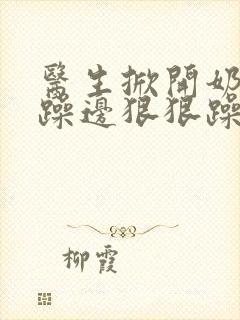 醫生掀開奶
躁邊狠狠躁
柳霞